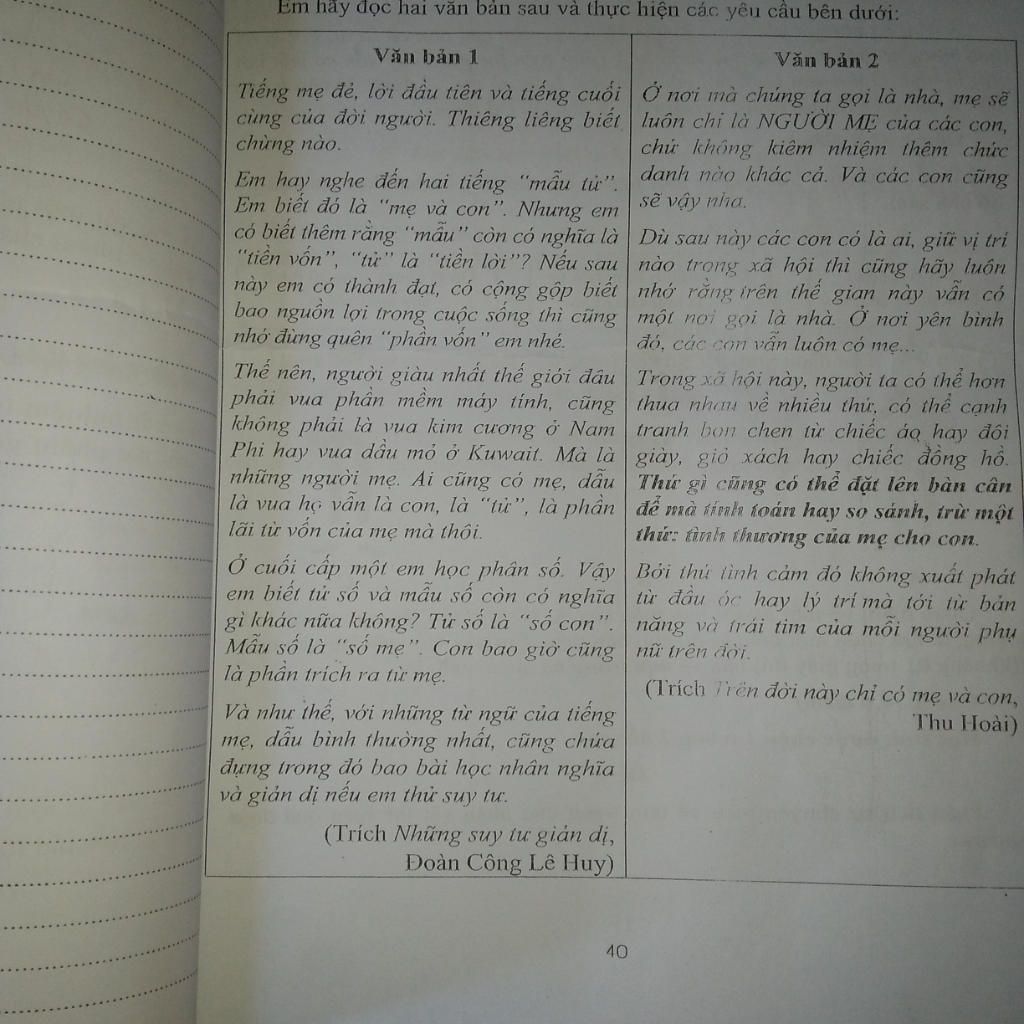 Em hãy đọc hai văn bản sau và thực hiện các yêu cầu bên dưới:
Văn bản 1
Tiếng mẹ đẻ, lời đầu tiên và tiếng cuối
cùng của đời người. Thiêng liêng biết
chừng nào.
Em hay nghe đến hai tiếng “mẫu tử”.
Em biết đó là “mẹ và con”. Nhưng em
có biết thêm rằng “mẫu” còn có nghĩa là
“tiền vốn”, “tử” là “tiền lời”? Nếu sau
này em có thành đạt, có cộng gộp biết
bao nguồn lợi trong cuộc sống thì cũng
nhớ đừng quên “phần vốn” em nhé.
Thế nên, người giàu nhất thế giới đâu
phải vua phần mềm máy tính, cũng
không phải là vua kim cương ở Nam
Phi hay vua dầu mỏ ở Kuwait. Mà là
những người mẹ. Ai cũng có mẹ, dẫu
là vua họ vẫn là con, là “tử”, là phần
lãi từ vốn của mẹ mà thôi.
Ở cuối cấp một em học phân số. Vậy
em biết tử số và mẫu số còn có nghĩa
gì khác nữa không? Tử số là “số con”.
Mẫu số là “số mẹ”. Con bao giờ cũng
là phần trích ra từ mẹ.
Và như thế, với những từ ngữ của tiếng
mẹ, dẫu bình thường nhất, cũng chứa
đựng trong đó bao bài học nhân nghĩa
và giản dị nếu em thử suy tư.
(Trích Những suy tư giản dị,
Đoàn Công Lê Huy)
Văn bản 2
Ở nơi mà chúng ta gọi là nhà, mẹ sẽ
luôn chỉ là NGƯỜI MẸ của các con,
chứ không kiêm nhiệm thêm chức
danh nào khác cả. Và các con cũng
sẽ vậy nha.
Dù sau này các con có là ai, giữ vị trí
nào trong xã hội thì cũng hãy luôn
nhớ rằng trên thế gian này vẫn có
một nơi gọi là nhà. Ở nơi yên bình
đó, các con vẫn luôn có mẹ...
Trong xã hội này, người ta có thể hơn
thua nhau về nhiều thứ, có thể cạnh
tranh bon chen từ chiếc áo hay đôi
giày, giỏ xách hay chiếc đồng hồ.
Thứ gì cũng có thể đặt lên bàn cân
để mà tính toán hay so sánh, trừ một
thứ: tình thương của mẹ cho con.
Bởi thứ tình cảm đó không xuất phát
từ đầu óc hay lý trí mà tới từ bản
năng và trái tim của mỗi người phụ
nữ trên đời.
(Trích Trên đời này chỉ có mẹ và con,
Thu Hoài)
40